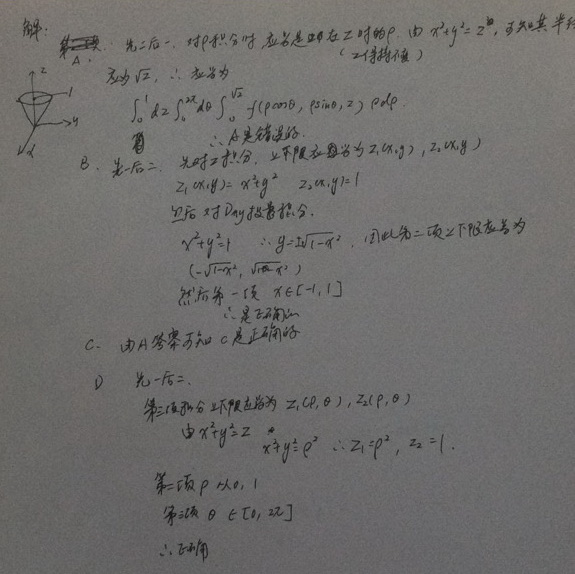 解:
A. 先二后一. 对ρ积分时 应当是 在Z时的ρ. 由 x²+y²=z, 可知其半径
(z保持值)
应为√z, ∴ 应当为
∫₀¹dz∫₀^{2π}dθ∫₀^{√z} f(ρcosθ, ρsinθ, z) ρdρ.
∴ A是错误的.
z
1
y
x
B. 先一后二. 先对z积分, 上下限应当为 z₁(x,y), z₂(x,y)
z₁(x,y)= x²+y² z₂(x,y)=1
然后对Dxy投影积分.
x²+y²=1 ∴ y=±√1-x². 因此第二项上下限应当为
(-√1-x², √1-x²)
然后第一项 x∈[-1, 1]
∴ 是正确的
C. 由A答案可知 C是正确的
D 先一后二.
第三项积分上下限应当为 z₁(ρ,θ), z₂(ρ,θ)
由x²+y²=z x²+y²=ρ² ∴ z₁=ρ², z₂=1.
第二项 ρ 从0, 1
第三项 θ ∈[0, 2π]
∴ 正确